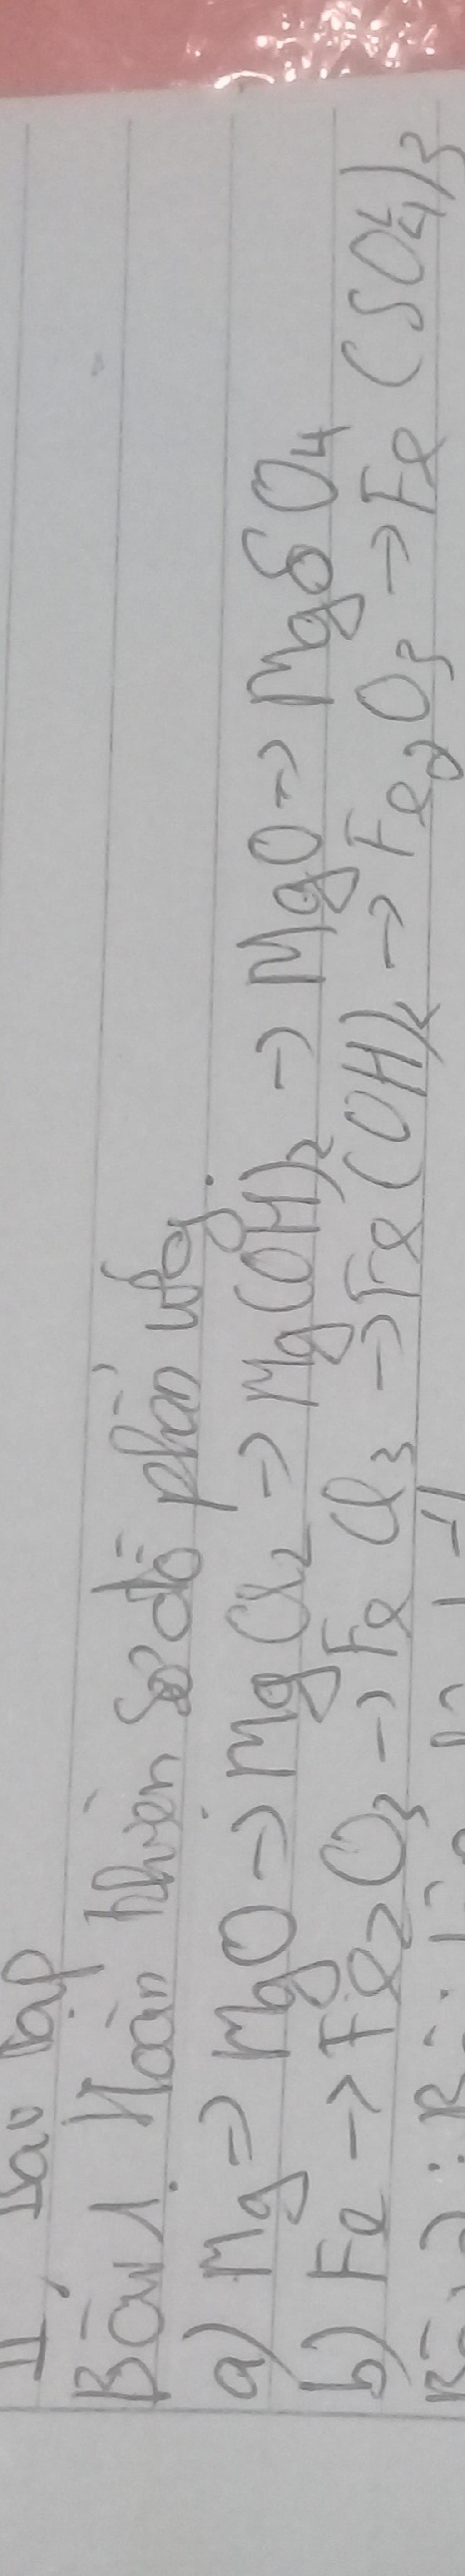 II, Bài tập
Bài 1. Hoàn thiện sơ đồ phản ứng.
a) Mg → MgO → MgCl2 → Mg(OH)2 → MgO → MgSO4
b) Fe → Fe2O3 → FeCl3 → Fe(OH)2 → Fe2O3 → Fe(SO4)3
Bài 2: